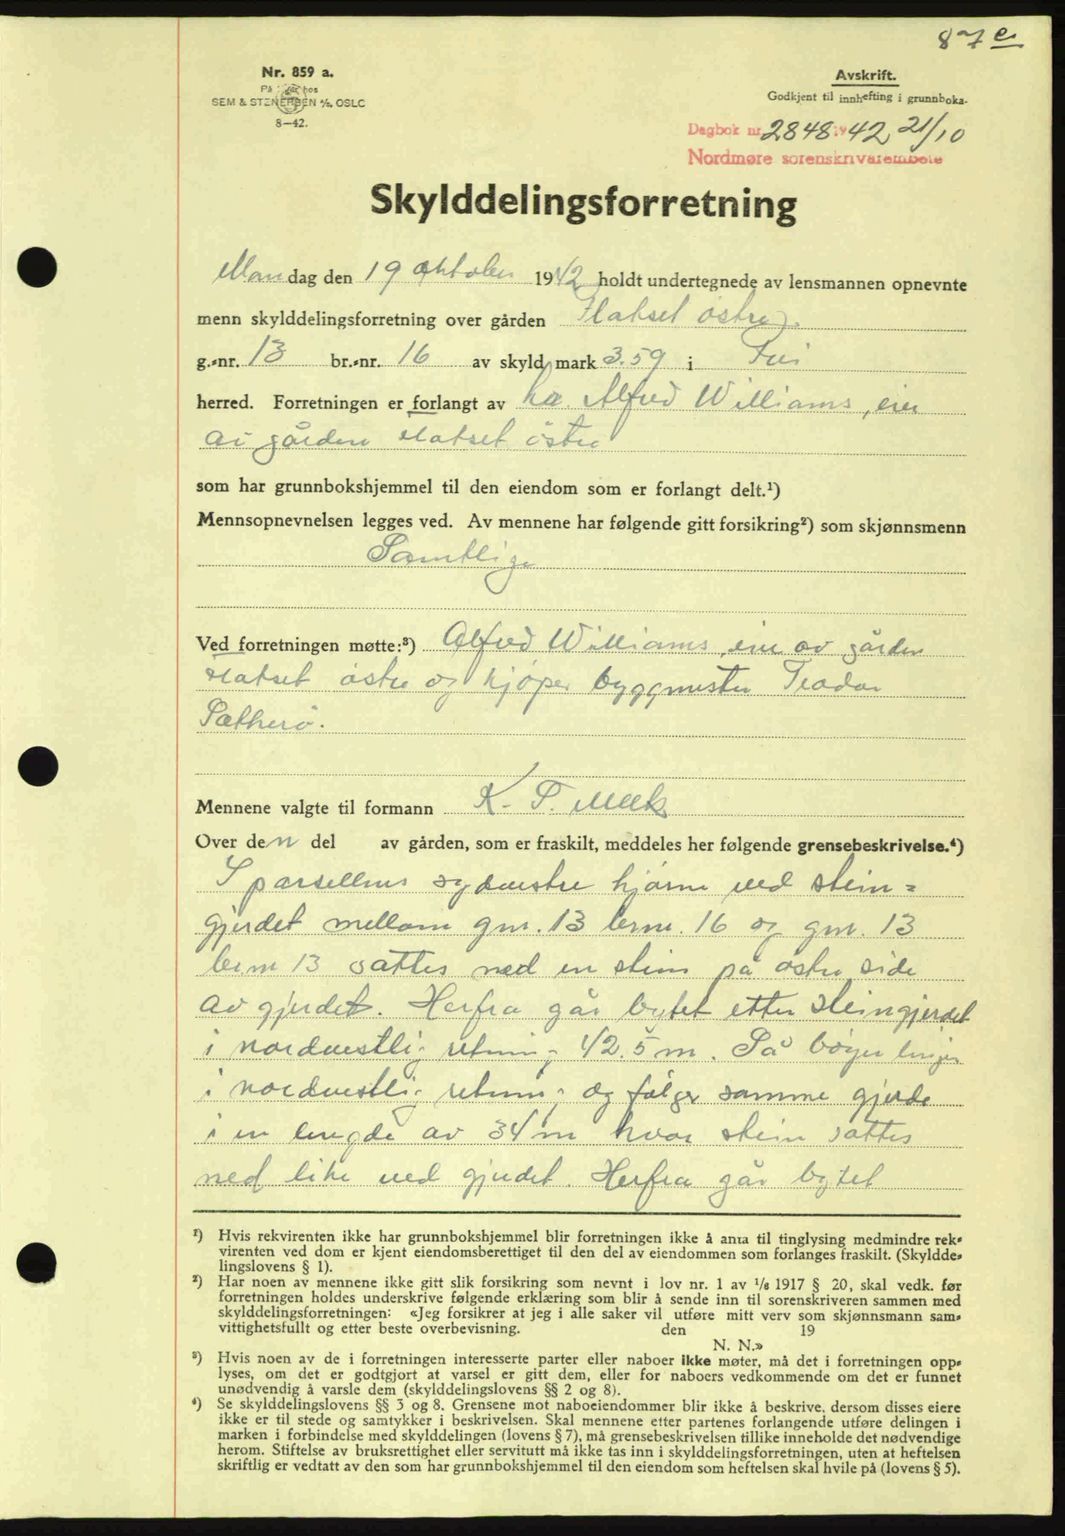 87e
Nr. 859 a.
SEM & STENERSEN A/S, OSLO
8-42.
Avskrift.
Godkjent til innhefting i grunnboka.
Dagbok nr. 2848 1942, 21/10
Nordmøre sorenskriverembete
Skylddelingsforretning
Mandag den 19 oktober 1942 holdt undertegnede av lensmannen opnevnte
menn skylddelingsforretning over gården Flatset østre
g.-nr. 13 br.-nr. 16 av skyld mark 3.59 i Frei
herred. Forretningen er forlangt av hr. Alfred Williams, eier
av gården Flatset østre
som har grunnbokshjemmel til den eiendom som er forlangt delt.¹)
Mennsopnevnelsen legges ved. Av mennene har følgende gitt forsikring²) som skjønnsmenn
Samtlige
Ved forretningen møtte:³) Alfred Williams, eier av gården
Flatset østre og kjøper byggmester Teodor
Sætherø.
Mennene valgte til formann K. P. Meek
Over den del av gården, som er fraskilt, meddeles her følgende grensebeskrivelse.⁴)
I parsellens sydvestre hjørne ved stein=
gjerdet mellom gnr. 13 brnr. 16 og gnr. 13
brnr 13 sattes ned en stein på østre side
av gjerdet. Herfra går bytet etter steingjerdet
i nordvestlig retning 42.5 m. Så bøyer linjen
i nordvestlig retning og følger samme gjerde
i en lengde av 34 m hvor stein sattes
ned like ved gjerdet. Herfra går bytet
¹) Hvis rekvirenten ikke har grunnbokshjemmel blir forretningen ikke å anta til tinglysing medmindre rek-
virenten ved dom er kjent eiendomsberettiget til den del av eiendommen som forlanges fraskilt. (Skyldde-
lingslovens § 1).
²) Har noen av mennene ikke gitt slik forsikring som nevnt i lov nr. 1 av 1/6 1917 § 20, skal vedk. før
forretningen holdes underskrive følgende erklæring som blir å sende inn til sorenskriveren sammen med
skylddelingsforretningen: «Jeg forsikrer at jeg i alle saker vil utføre mitt verv som skjønnsmann sam-
vittighetsfullt og etter beste overbevisning. den 19
N. N.»
³) Hvis noen av de i forretningen interesserte parter eller naboer ikke møter, må det i forretningen opp-
lyses, om det er godtgjort at varsel er gitt dem, eller for naboers vedkommende om det er funnet
unødvendig å varsle dem (skylddelingslovens §§ 2 og 8).
⁴) Se skylddelingslovens §§ 3 og 8. Grensene mot naboeiendommer blir ikke å beskrive, dersom disses eiere
ikke er til stede og samtykker i beskrivelsen. Skal mennene etter partenes forlangende utføre delingen i
marken i forbindelse med skylddelingen (lovens § 7), må grensebeskrivelsen tillike inneholde det nødvendige
herom. Stiftelse av bruksrettighet eller servitutt må ikke tas inn i skylddelingsforretningen, uten at heftelsen
skriftlig er vedtatt av den som har grunnbokshjemmel til den eiendom som heftelsen skal hvile på (lovens § 5).